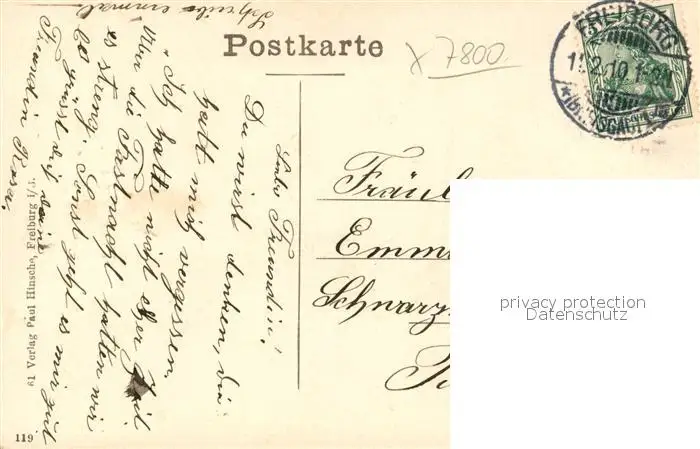 Postkarte
x 7800.
FREIBURG
11.2.10.1-2N.
* (BREISGAU) *
Liebe Freundin!
Du wirst denken, die
hatt mich vergessen.
Ich hatte nicht eher Zeit
Um die Fastnacht hatten wir
es streng. Sonst geht es mir gut
Es grüsst dich deine
Freundin Rosa.
Schreibe einmal
Fräul
Emm
Schwarz
61 Verlag Paul Hinsche, Freiburg i/B.
119
privacy protection
Datenschutz